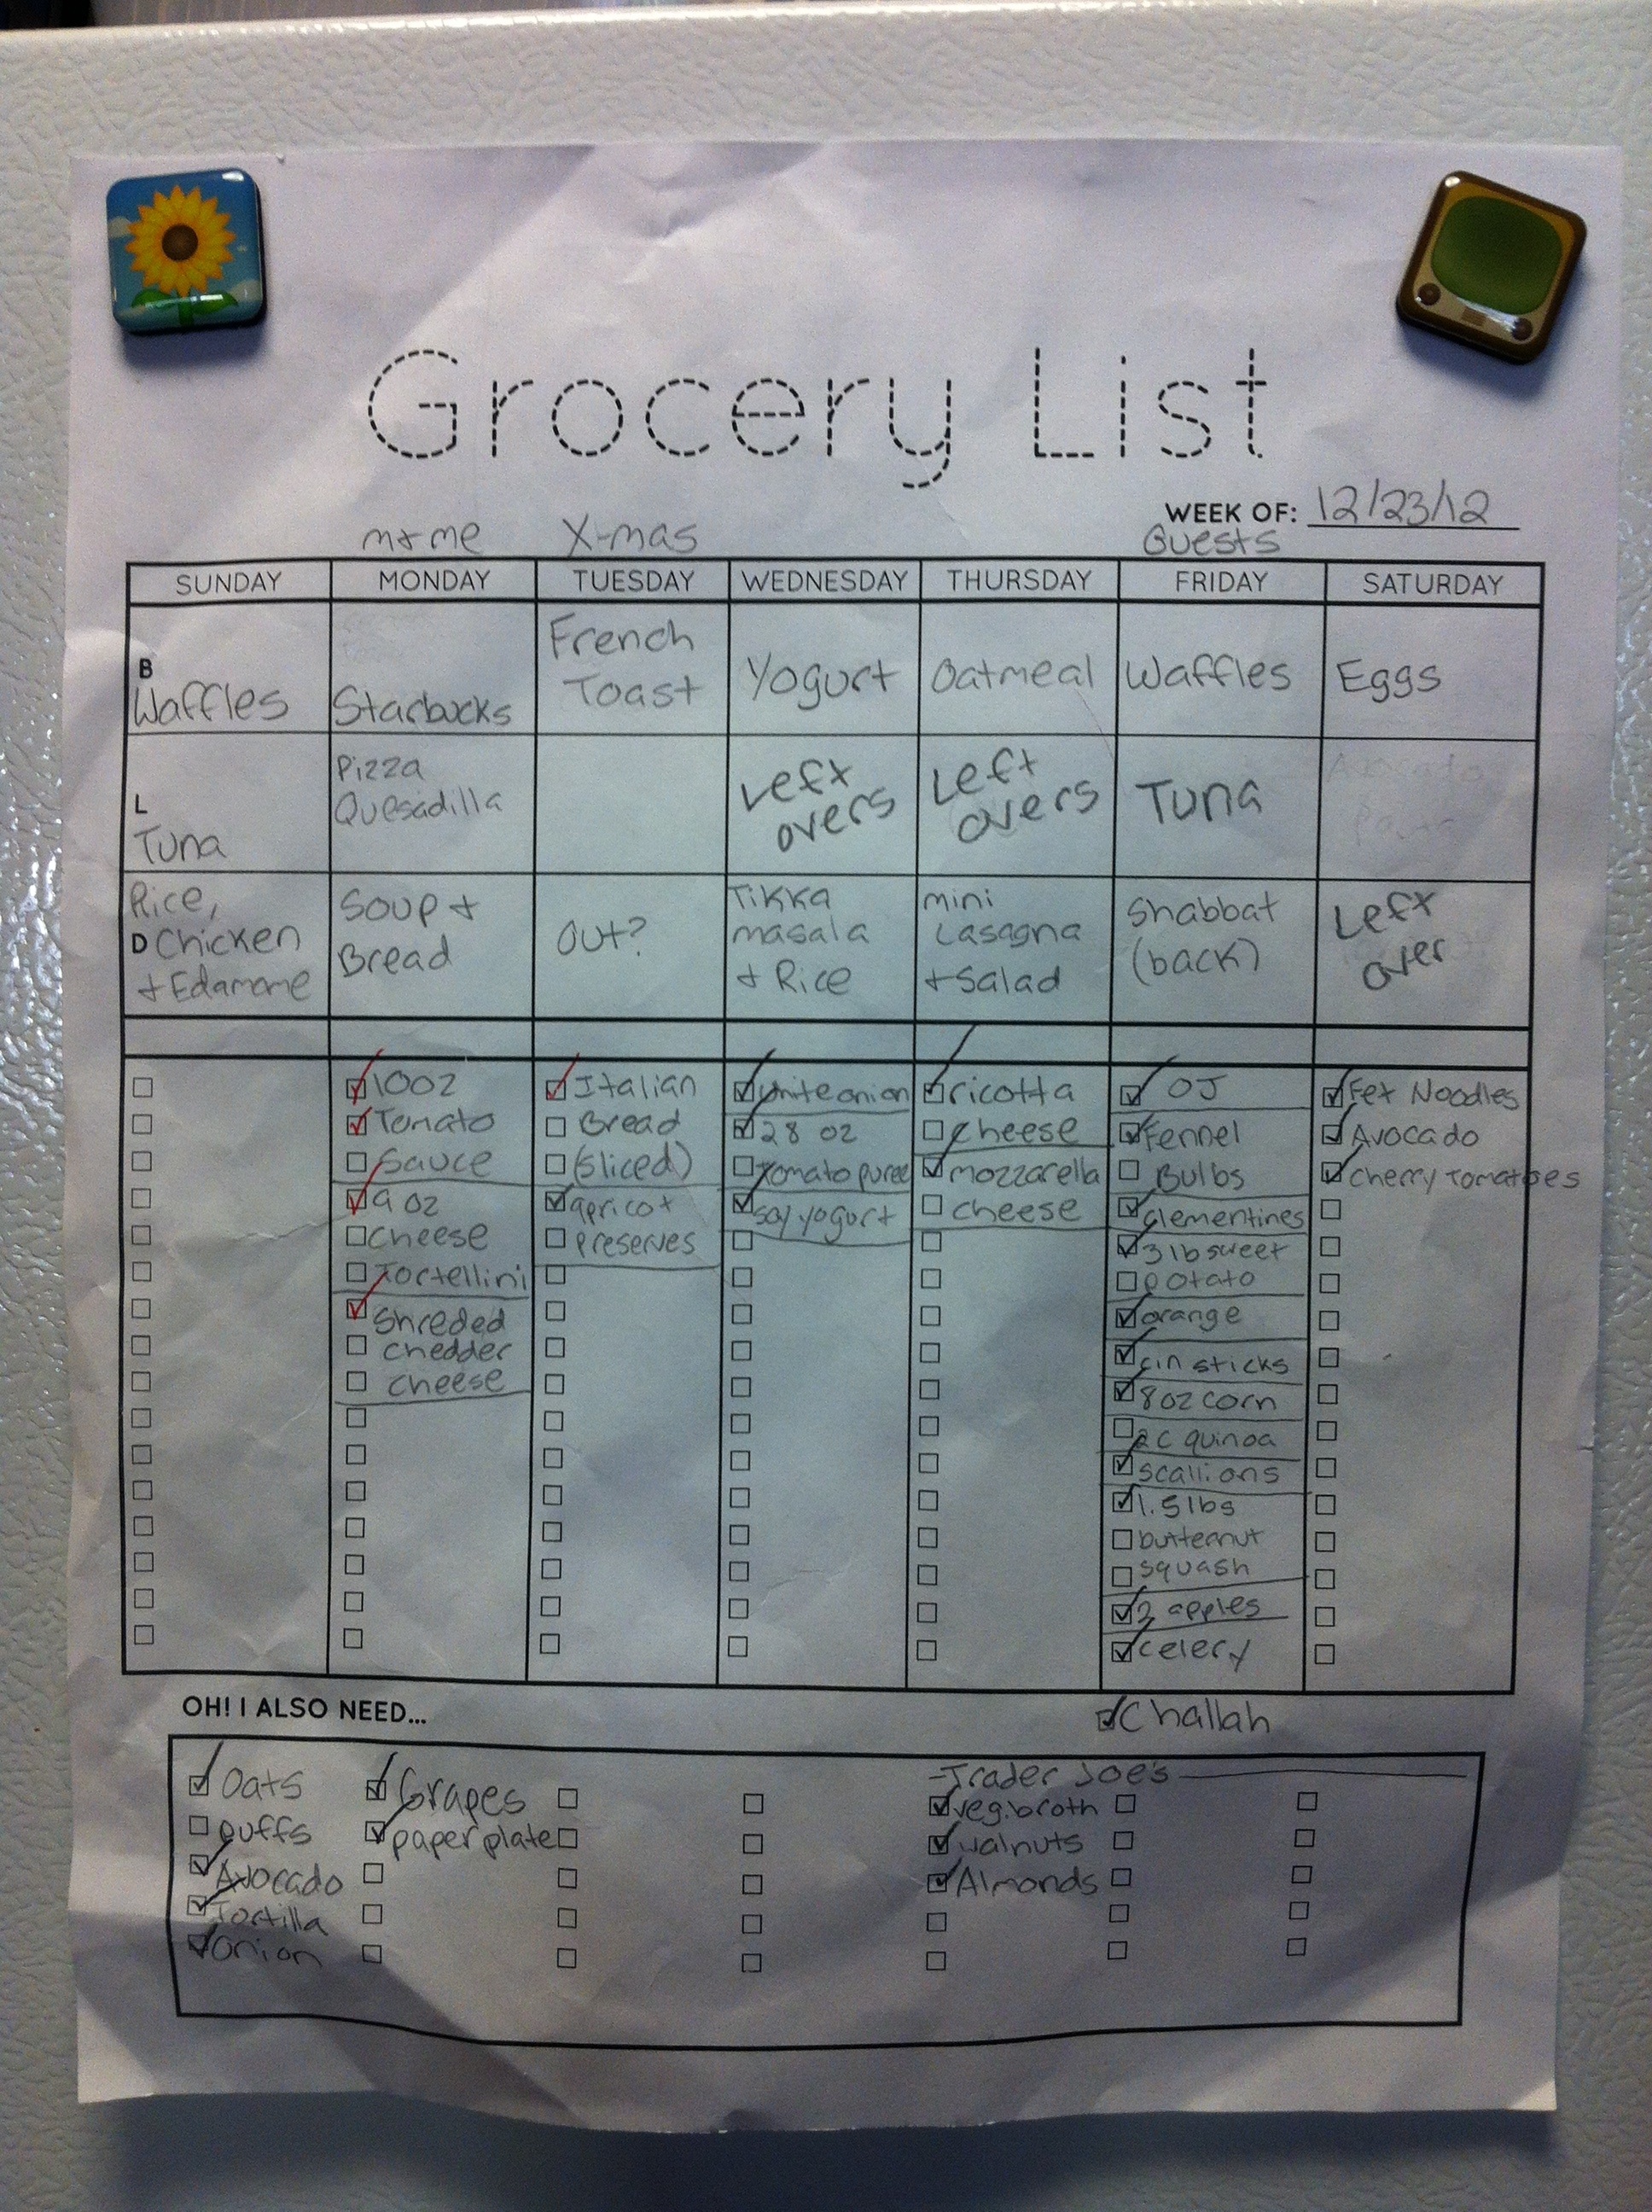 Grocery List
WEEK OF: 12/23/12
m+me X-mas Guests
SUNDAY MONDAY TUESDAY WEDNESDAY THURSDAY FRIDAY SATURDAY
B
Waffles
Starbucks
French
Toast
Yogurt
Oatmeal
Waffles
Eggs
L
Tuna
Pizza
Quesadilla
Left
overs
Left
overs
Tuna
Rice,
D Chicken
+ Edamame
Soup +
Bread
Out?
Tikka
masala
+ Rice
mini
Lasagna
+ Salad
Shabbat
(back)
Left
over
10oz
Tomato
Sauce
9 oz
cheese
Tortellini
Shreded
chedder
cheese
Italian
Bread
(Sliced)
apricot
preserves
white onion
28 oz
Tomato puree
soy yogurt
ricotta
cheese
mozzarella
cheese
OJ
Fennel
Bulbs
clementines
3 lb sweet
potato
orange
cin sticks
8oz corn
2c quinoa
scallions
1.5 lbs
butternut
squash
2 apples
celery
Challah
Fet Noodles
Avocado
Cherry Tomatoes
OH! I ALSO NEED...
Oats
puffs
Avocado
Tortilla
Onion
Grapes
paper plate
-Trader Joe's
veg. broth
walnuts
Almonds